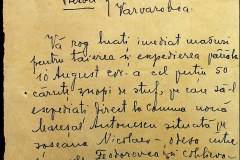 Varvarovca.
Vă rog luați imediat măsuri
pentru tăierea și expedierea până la
10 August cor. a cel puțin 50
căruți snopi de stuf, pe care să-l
expediați direct la comuna nouă
Mareșal Antonescu situată pe
șoseaua Nicolaev - Odesa între
Fedorovca și